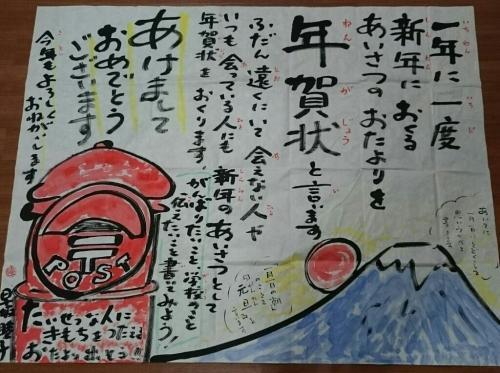 一年に一度
新年におくる
あいさつのおたよりを
年賀状と言います
ふだん遠くにいて会えない人や
いつも会っている人にも新年のあいさつとして
年賀状をおくります
がんばりたいこと学校のこと
伝えたいこと書いてみよう!
あけまして
おめでとう
ございます
今年もよろしく
おねがいします
一月一日の朝
元旦
POST
たいせつな人に
きもちをつたえる
おたより出しそう!!